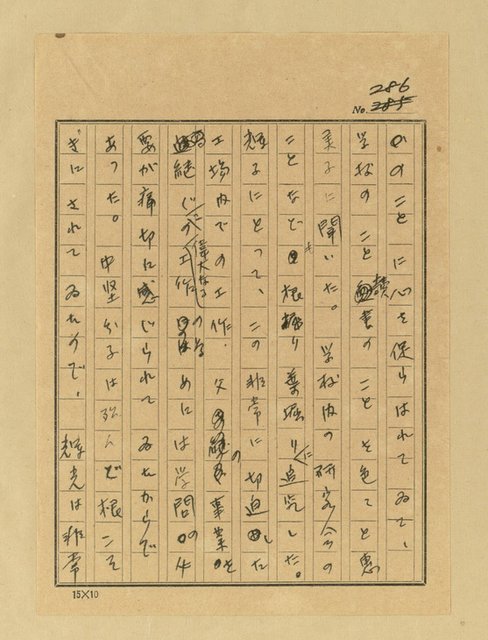 286
No. 285
かのことに心を捉らはれてゐて、
学校のこと読書のことを色々と恵
美子に聞いた。学校内の研究会の
ことなど根掘り葉掘りに追究した。
輝子にとつて、この非常に切迫した
工場内での工作、父の事業を
継ぐの工作 偉大なる のためには学問の必
要が痛切に感じられてゐたからで
あつた。中堅分子は殆んど根こそ
ぎにされてゐたので、輝光は非常
15×10